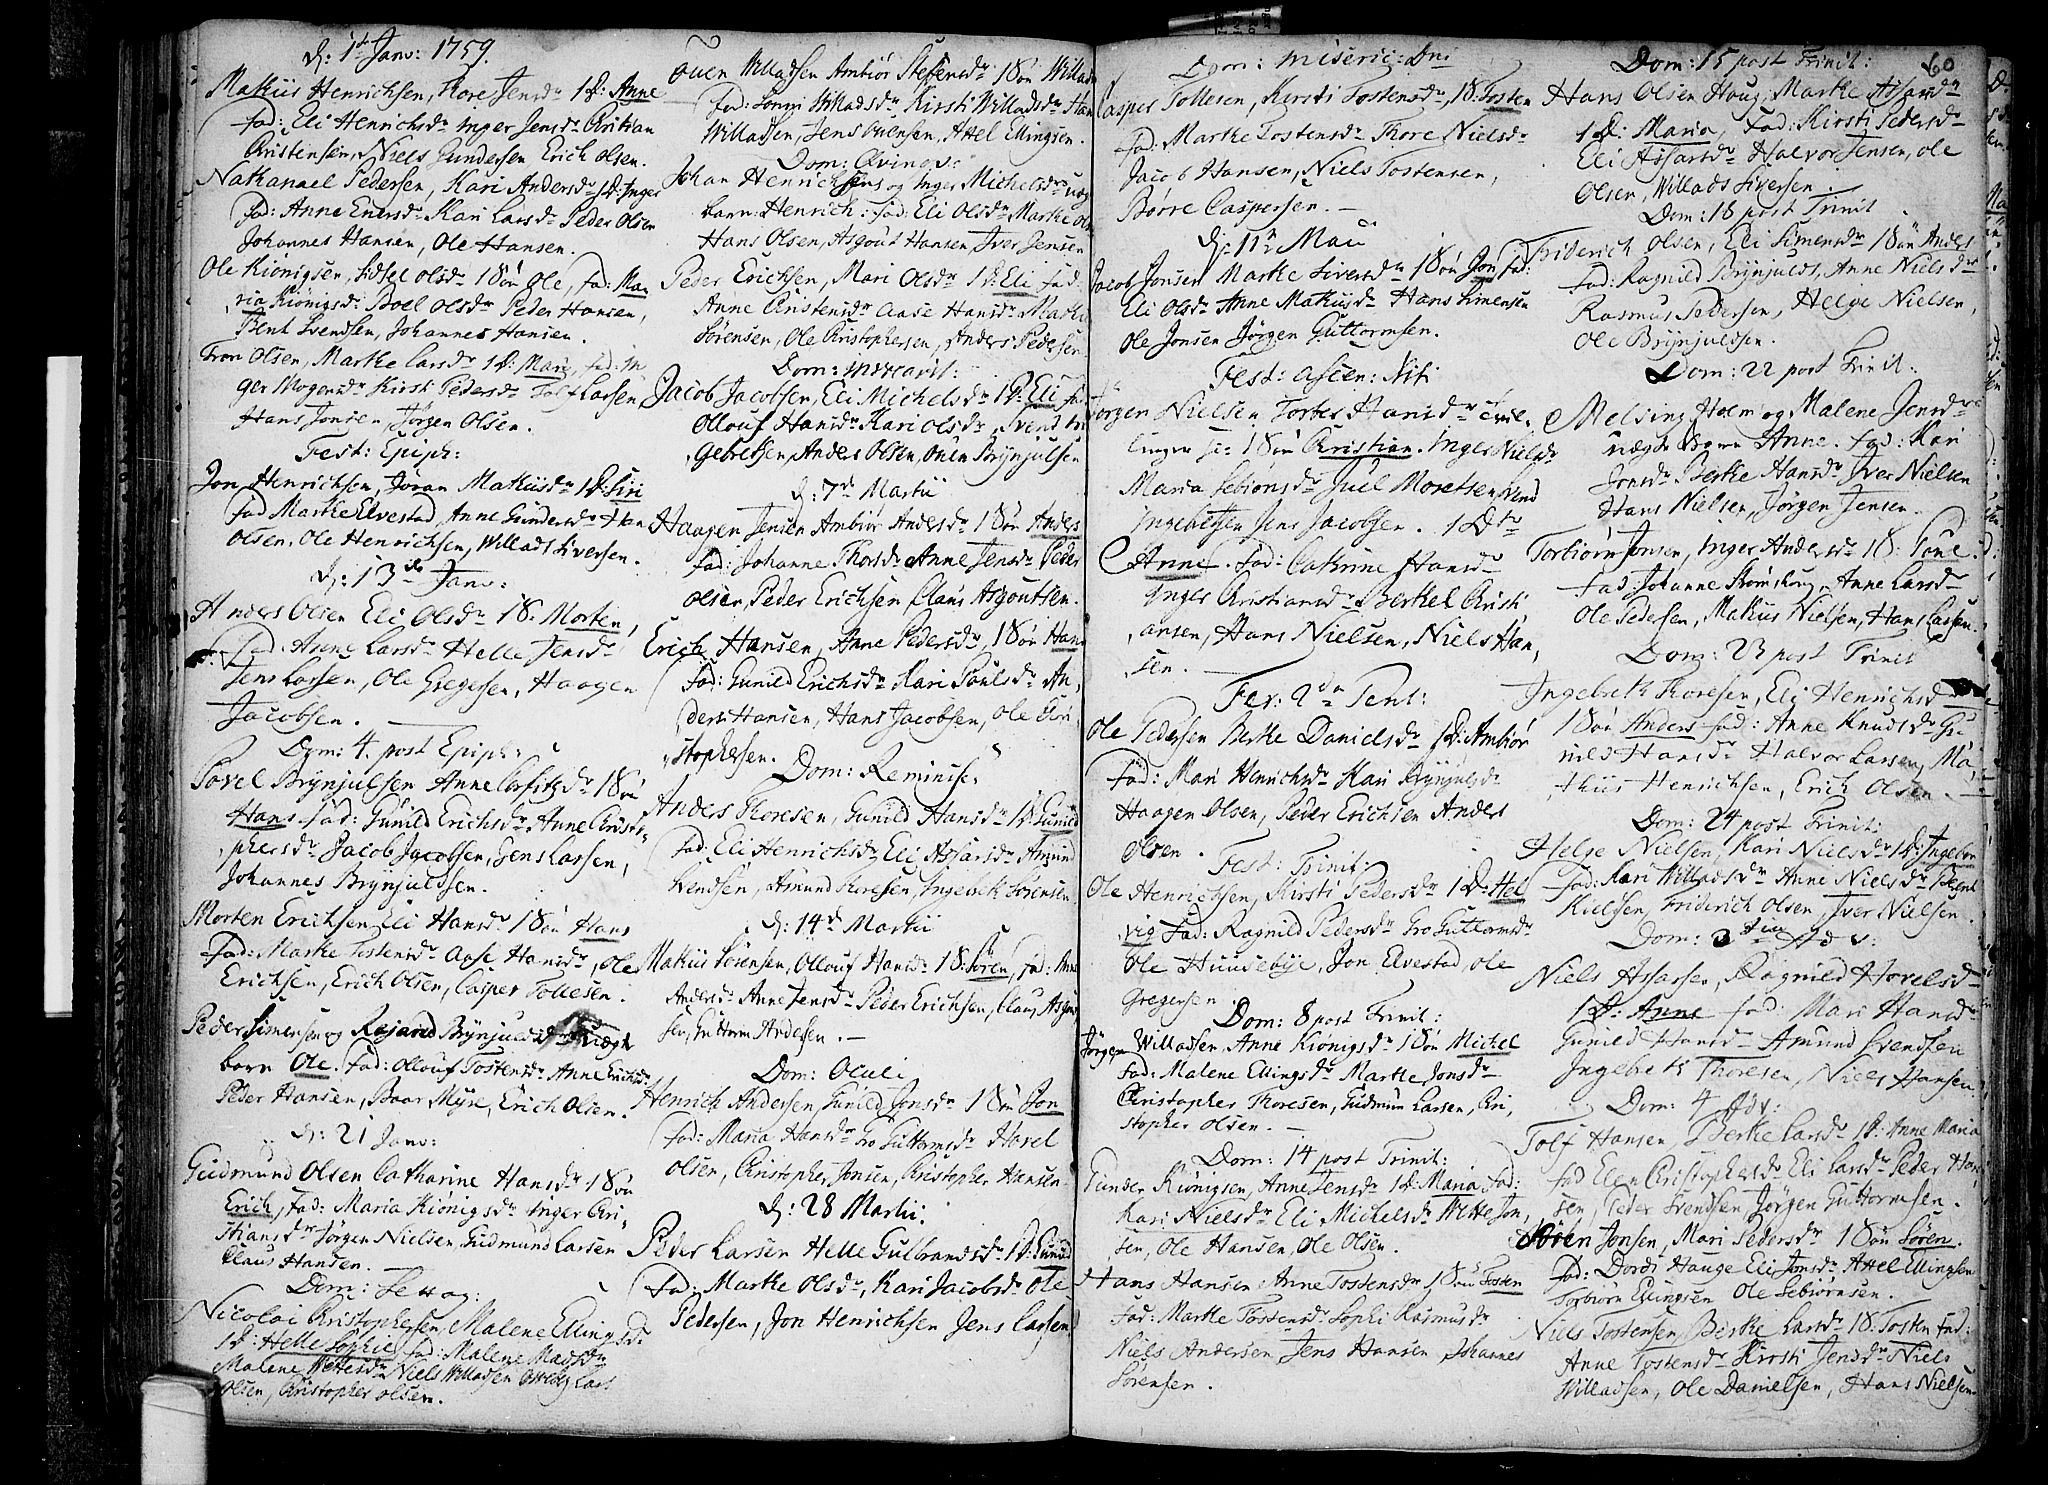 d: 1ste Janv: 1759.
Mathis Henrichsen, Thore Jensdr 1 D: Anne
fad: Eli Henrichsdr Inger Jensdr Cristian
Cristensen, Niels Gundersen Erich Olsen.
Nathanael Pedersen, Kari Andersdr 1 D: Inger
fad: Anne Enersdr Kari Larsdr Peder Olsen
Johannes Hansen, Ole Hansen.
Ole Kiönigsen, Sidsel Olsdr 1 Sön Ole, fad: Ma-
ria Kiönigsdr Bodel Olsdr Peder Hansen,
Bent Svendsen, Johannes Hansen.
Tron Olsen, Marthe Larsdr 1 D: Mari, fad: In
ger Mogensdr Kirsti Pedersdr Tolf Larsen,
Hans Jonsen, Jørgen Olsen.
Fest: Epiph:
Jon Henrichsen, Joran Mathisdr 1 D: Siri
fad Marthe Elvestad, Anne Gundersdr
Olsen, Ole Henrichsen, Willads Siversen.
d: 13de Janv:
Anders Olsen Eli Olsdr 1 S. Morten,
fad. Anne Larsdr Helle Jensdr
Jens Larsen, Ole Gregersen, Haagen
Jacobsen.
Dom: 4. post Epiph:
Povel Brynjulsen Anne 1 Sön
Hans. fad: Gunild Erichsdr Anne Cristo-
phersdr Jacob Jacobsen, Jens Larsen,
Johannes Brynjuldsen.
Morten Erichsen Eli Hansdr 1 Sön Hans
fad: Marthe Tostensdr Aase Hansdr, Ole
Erichsen, Erich Olsen, Casper Tollesen.
Peder Simensen og Brynjuldsdr uægte
barn Ole. fad: Ollouf Tostensdr Anne Erichsdr
Peder Hansen, Baar Myre, Erich Olsen.
d: 21 Janv:
Gudmund Olsen Catharine Hansdr 1 Sön
Erich, fad: Maria Kiönigsdr Inger Cri-
stiansdr Jørgen Nielsen, Gudmund Larsen
Claus Hansen.
Dom: Sexag:
Nicolai Cristophersen, Malene Ellingsdr
1 D: Helle Sophie fad: Malene Madsdr
Malene Niels Willadsen Lars
Olsen, Cristopher Olsen.
Ouen Willadsen Ambiør Stefensdr 1 Sön Willads
fad: Willadsdr Kirsti Willadsdr Hans
Willadsen, Jens Ouensen, Axel Ellingsen.
Dom: Qvinqv:
Johan Henrichsens og Inger Michelsdr uæg
barn: Henrich: fad: Eli Olsdr Marthe Ols
Hans Olsen, Asgout Hansen, Iver Jensen
Peder Erichsen, Mari Olsdr 1 D. Eli fad:
Anne Cristensdr Aase Hansdr
Sörensen, Ole Cristophersen, Anders Pedersen
Dom: invocavit:
Jacob Jacobsen, Eli Michelsdr 1 D: Eli fad
Ollouf Hansdr Kari Olsdr, Svend In
gebretsen, Anders Olsen, Ouen Brynjulsen
d: 7de Martii
Haagen Jensen Ambiør Andersdr 1 Sön Anders
fad: Johanne Thorsdr Anne Jensdr Peder
Olsen, Peder Erichsen Claus Asgoutsen.
Erich Hansen, Anne Pedersdr, 1 Sön Hans
fad: Gunild Erichsdr Kari Poulsdr An-
ders Hansen, Hans Jacobsen, Ole Cri-
stophersen.
Dom: Reminisc:
Anders Thoresen, Gunild Hansdr 1 D: Gunild
fad: Eli Henrichsdr Eli Assarsdr Amund
Svendsen, Amund Thoresen, Ingebret Sörensen
d: 14de Martii
Mathis Sörensen, Ollouf Hansdr 1 S: Sören, fad: Anne
Andersdr Anne Jensdr Peder Erichsen, Claus Asgout
sen, Guttorm Andersen.
Dom: Oculi
Henrich Andersen, Gunild Jonsdr 1 Sön Jon
fad: Maria Hansdr Gro Guttormsdr Hovel
Olsen, Cristopher Jonsen, Cristopher Hansen.
d: 28 Martii.
Peder Larsen Helle Gulbrandsdr 1 D: Gunild
fad: Marthe Olsdr, Kari Jacobsdr Ole
Pedersen, Jon Henrichsen Jens Larsen
60
Dom: Miseric: Dni
Casper Tollesen, Kirsti Tostensdr, 1 S. Tosten
fad: Marthe Tostensdr Thore Nielsdr
Jacob Hansen, Niels Tostensen,
Børre Caspersen.
d: 11te Maii
Jacob Jonsen Marthe Siversdr 1 Sön Jon fad:
Eli Olsdr Anne Mathisdr Hans Simensen
Ole Jonsen Jörgen Guttormsen.
Fest: Ascen: Xsti
Jørgen Nielsen Torber Hansdr tvil-
linger 1 Sön Cristian. Inger Nielsdr
Maria Sebiönsdr Juel Moretsen, Svend
Ingebretsen Jens Jacobsen. 1 Dtr
Anne. fad: Cathrine Hansdr
Inger Cristiansdr Berthel Cristi
ansen, Hans Nielsen, Niels Han-
sen.
Fer: 2da Pent:
Ole Pedersen Berthe Danielsdr 1 D: Ambiør
fad: Mari Henrichsdr Kari Brynjulsdr
Haagen Olsen, Peder Erichsen Anders
Olsen.
Fest: Trinit:
Ole Henrichsen, Kirsti Pedersdr 1 D: Hel
vig fad: Ragnild Pedersdr Gro Guttormsdr
Ole Huusebye, Jon Elvestad, Ole
Gregersen.
Dom: 8 post Trinit:
Jörgen Willadsen, Anne Kiönigsdr 1 Sön Michel
fad: Malene Ellingsdr Marthe Jonsdr
Christopher Thoresen, Gudmun Larsen, Cri-
stopher Olsen.
Dom: 14 post Trinit:
Gunder Kiönigsen, Anne Jensdr 1 D: Maria fad:
Kari Nielsdr Eli Michelsdr Jon-
sen, Ole Hansen, Ole Olsen.
Hans Hansen Anne Tostensdr 1 Sön Tosten
fad: Marthe Tostensdr Sophi Rasmusdr
Niels Andersen Jens Hansen, Johannes
Sörensen.
Dom: 15 post Trinit:
Hans Olsen Houg, Marthe Assarsdr
1 D: Maria, fad: Kirsti Pedersdr
Eli Assarsdr Halvor Jensen, Ole
Olsen, Willads Siversen.
Dom: 18 post Trinit
Friderich Olsen, Eli Simensdr 1 Sön Anders
fad: Ragnild Brynjulds, Anne Nielsdr
Rasmus Pedersen, Helge Nielsen,
Ole Brynjuldsen.
Dom: 22 post Trinit:
Melsing Holm og Malene Jensdr
uægte barn Anne. fad: Kari
Jonsdr Berthe Hansdr Iver Nielsen
Hans Nielsen, Jörgen Jensen.
Torbiörn Jonsen, Inger Andersdr 1 S:
fad: Johanne Anne Larsdr
Ole Pedersen, Mathis Nielsen, Hans Larsen.
Dom: 23 post Trinit
Ingebreth Thoresen, Eli Henrichsd
1 Sön Anders fad: Anne Knudsdr Gu
nild Hansdr Halvor Larsen, Ma-
thias Henrichsen, Erich Olsen.
Dom: 24 post Trinit:
Helge Nielsen, Kari Nielsdr 1 D: Ingebor
fad: Kari Willadsdr Anne Nielsdr Bernt
Nielsen, Friderich Olsen, Iver Nielsen.
Dom: 3tia Adv:
Niels Assarsen, Ragnild Hovelsdr
1 D: Anne fad: Mari Hansdr
Gunild Hansdr Amund Svendsen
Ingebret Thoresen, Niels Hansen.
Dom: 4 Adv:
Tolf Hansen Berthe Larsdr 1 D: Anne Maria
fad Elen Christophersdr Eli Larsdr Peder Han
sen, Peder Svendsen Jörgen Guttormsen.
Sören Jonsen, Mari Pedersdr 1 Sön Sören.
fad: Dordi Houge Eli Jonsdr Axel Ellingsen
Torbiörn Ellingsen Ole Sebiörnsen.
Niels Tostensen, Berthe Larsdr 1 S: Tosten fad:
Anne Tostensdr Kirsti Jensdr Niels
Willadsen, Ole Danielsen, Hans Nielsen